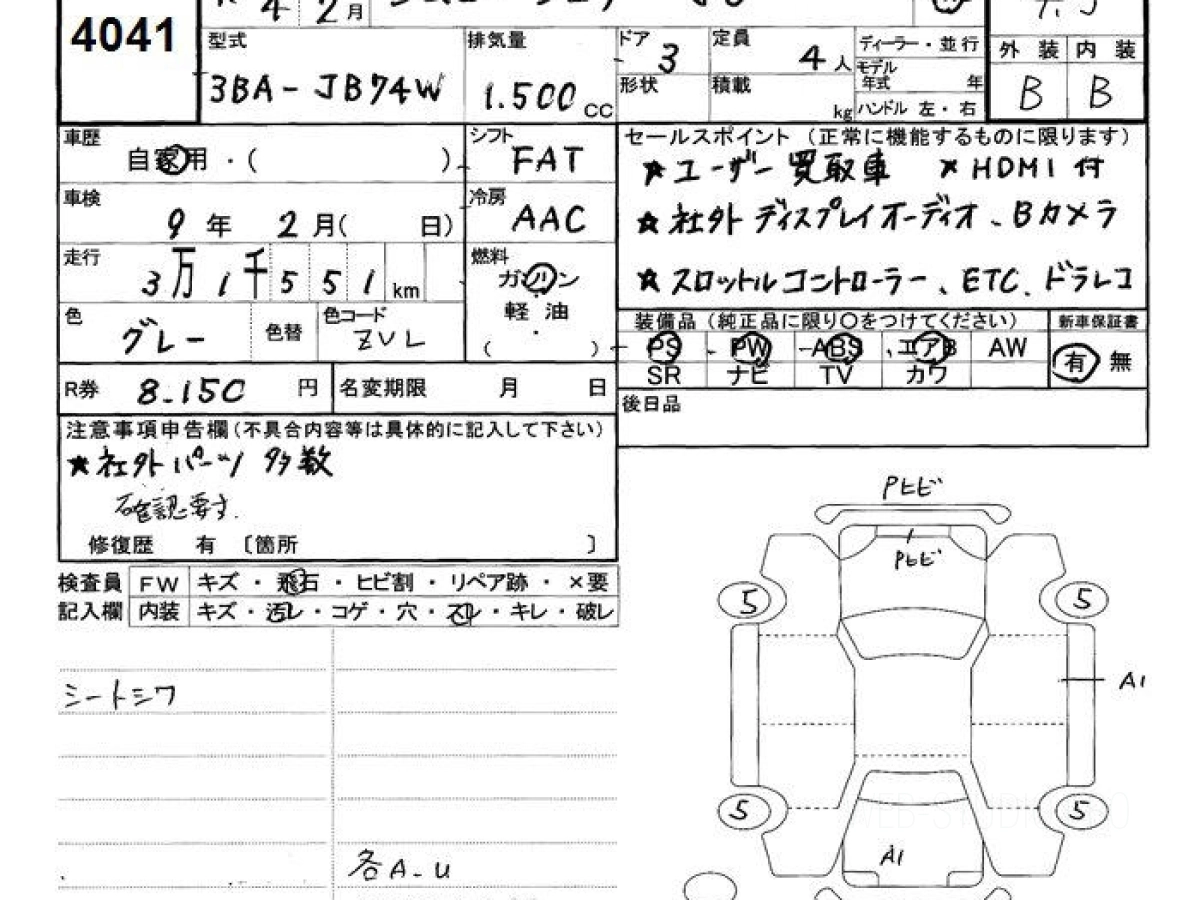 4041
R 4 2月
型式 排気量 ドア 3 定員 4人 ディーラー・並行 外装 内装
3BA-JB74W 1.500 CC 形状 積載 kg モデル年式 年 B B
ハンドル 左・右
車歴 自家用・( ) シフト FAT
セールスポイント (正常に機能するものに限ります)
★ユーザー買取車 ★HDMI付
車検 9年 2月( 日) 冷房 AAC
★社外ディスプレイオーディオ、Bカメラ
走行 3万1千551km 燃料 ガソリン
軽油
・
( )
★スロットルコントローラー、ETC、ドラレコ
色 グレー 色替 色コード ZVL
装備品 (純正品に限り〇をつけてください) 新車保証書
PS PW ABS エアB AW 有 無
SR ナビ TV カワ
R券 8.150円 名変期限 月 日
後日品
注意事項申告欄(不具合内容等は具体的に記入して下さい)
★社外パーツ多数
確認要す.
修復歴 有 〔箇所 〕
検査員 FW キズ・飛石・ヒビ割・リペア跡・×要
記入欄 内装 キズ・汚レ・コゲ・穴・スレ・キレ・破レ
シートシワ
各A-U
Pヒビ
Pヒビ
5 5
A1
5 5
A1